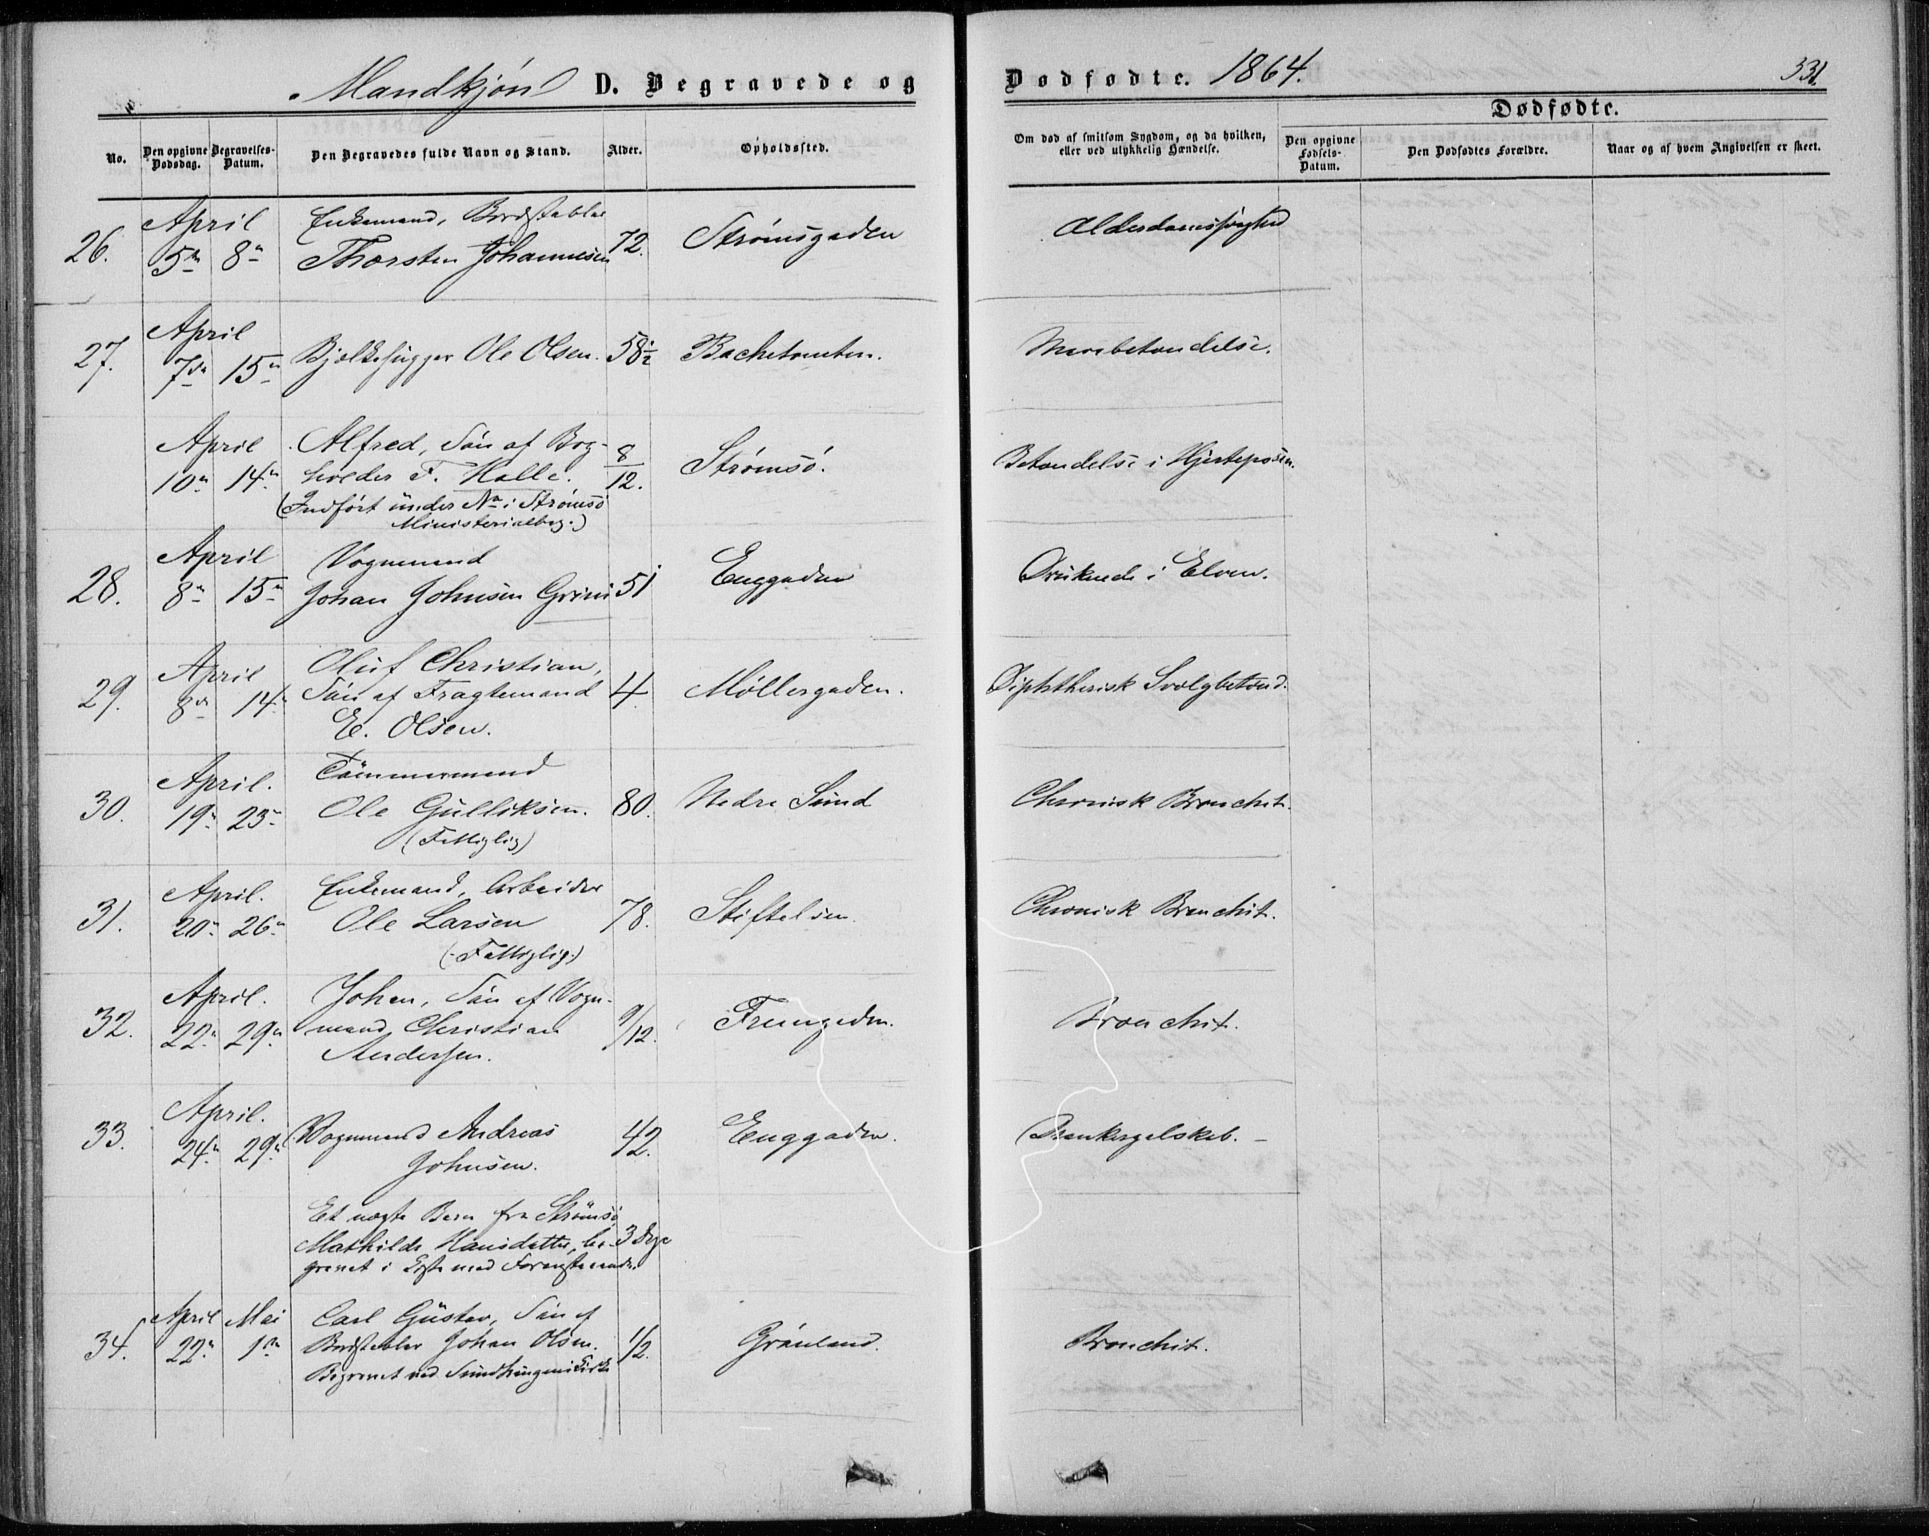 Mandkjøn D. Begravede og Dødfødte. 1864. 331.
Dødfødte.
No. Den opgivne Dødsdag. Begravelses-Datum. Den Begravedes fulde Navn og Stand. Alder. Opholdssted. Om død af smitsom Sygdom, og da hvilken, eller ved ulykkelig Hændelse. Den opgivne Fødsels-Datum. Den Dødfødtes Forældre. Naar og af hvem Angivelsen er skeet.
April Enkemand, Bordstabler
26. 5te 8de Thorsten Johannesen 72. Strømsgaden Alderdomssvaghed
April
27. 7de 15de Bjelkehugger Ole Olsen. 58½ Bachetomten. Nyrebetændelse.
April Alfred, Søn af Bog-
10de 14de holder F. Halle. 8/12. Strømsö. Betændelse i Hjerteposen.
(Indført under No i Strømsö
Ministerialbog.)
April Vognmand
28. 8de 15de Johan Johnsen Grini 51 Enggaden Druknede i Elven.
April Oluf Christian,
29. 8de 14de Søn af Fragtemand 4. Møllergaden. Diphtherisk Svælgbetænd.
E. Olsen.
April. Tömmermand
30. 19de 23de Ole Gulliksen. 80. Nedre Sund Chronisk Bronchit.
(Fattiglig)
April. Enkemand, Arbeider
31. 20de 26de Ole Larsen 78. Stiftelsen. Chronisk Bronchit.
(Fattiglig)
April. Johan, Søn af Vogn-
32. 22de 29de mand Christian 9/12. Bronchit.
Andersen.
April.
33. 24de 29de Vognmand Andreas 42. Enggaden. Drankergalskab.
Johnsen.
Et uægte Barn fra Strömsö,
Mathilde Hansdatter, be- 3 Dage
gravet i med Foranstaaende.
April Mai Carl Gustav, Søn af
34. 22de 1ste Bordstabler Johan Olsen. 1/2. Grønland. Bronchit.
Begravet ved Sundhaugens Kirke